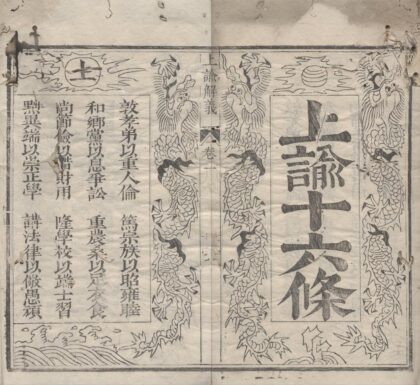 上諭十六條
上諭解義
卷
敦孝弟以重人倫　篤宗族以昭雍睦
和鄉黨以息爭訟　重農桑以足衣食
尚節儉以惜財用　隆學校以端士習
黜異端以崇正學　講法律以儆愚頑